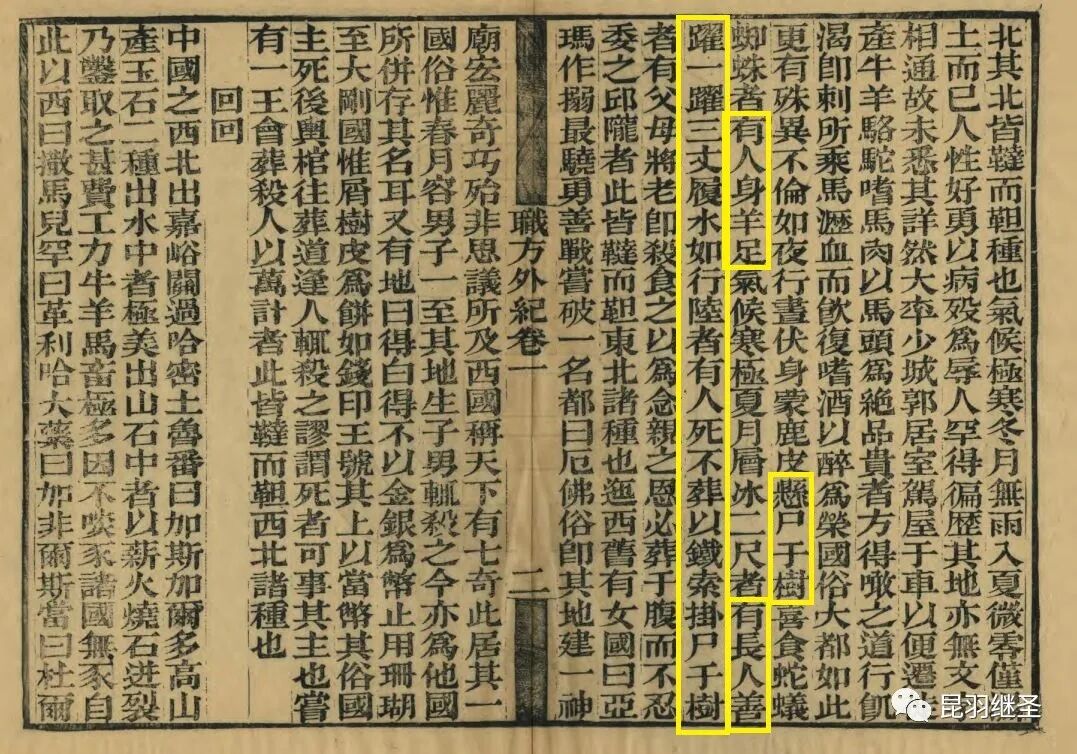 北其北皆韃而靼種也氣候極寒冬月無雨入夏微零僅
土而已人性好勇以病歿爲辱人罕得徧歷其地亦無文
相通故未悉其詳然大率少城郭居室駕屋于車以便遷
產牛羊駱駝嗜馬肉以馬頭爲絶品貴者方得噉之道行飢
渴卽刺所乘馬瀝血而飲復嗜酒以醉爲榮國俗大都如此
更有殊異不倫如夜行晝伏身蒙鹿皮懸尸于樹喜食蛇蟻
蜘蛛者有人身羊足氣候寒極夏月層冰二尺者有長人善
躍一躍三丈履水如行陸者有人死不葬以鐵索掛尸于樹
者有父母將老卽殺食之以爲念親之恩必葬于腹而不忍
委之邱隴者此皆韃而靼東北諸種也迤西舊有女國曰亞
瑪作搦最驍勇善戰嘗破一名都曰厄佛俗卽其地建一神
職方外紀卷一
二
廟宏麗奇巧殆非思議所及西國稱天下有七奇此居其一
國俗惟春月容男子一至其地生子男輒殺之今亦爲他國
所併存其名耳又有地曰得白得不以金銀爲幣止用珊瑚
至大剛國惟屑樹皮爲餅如錢印王號其上以當幣其俗國
主死後輿棺往葬道逢人輒殺之謬謂死者可事其主也嘗
有一王會葬殺人以萬計者此皆韃而靼西北諸種也
回回
中國之西北出嘉峪關過哈密土魯番曰加斯加爾多高山
產玉石二種出水中者極美出山石中者以薪火燒石迸裂
乃鑿取之甚費工力牛羊馬畜極多因不啖豕諸國無豕自
此以西曰撒馬兒罕曰革利哈大藥曰加非爾斯當曰杜爾
昆羽继圣